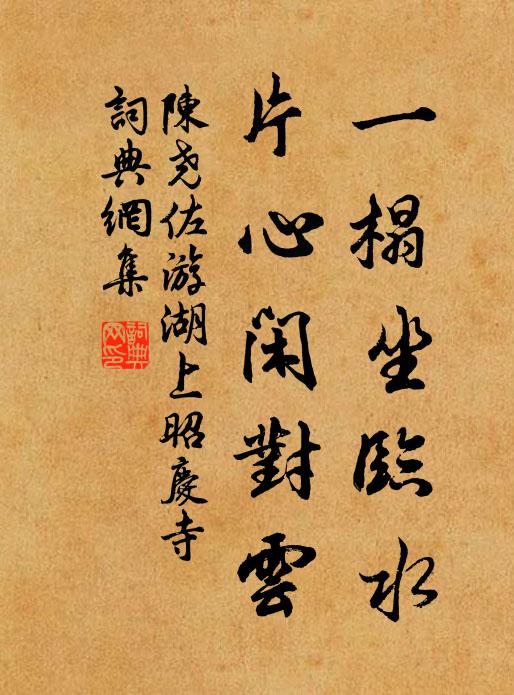 一榻坐臨水
片心閑對雲
陳堯佐游湖上昭慶寺
詞典網集
詞典網印